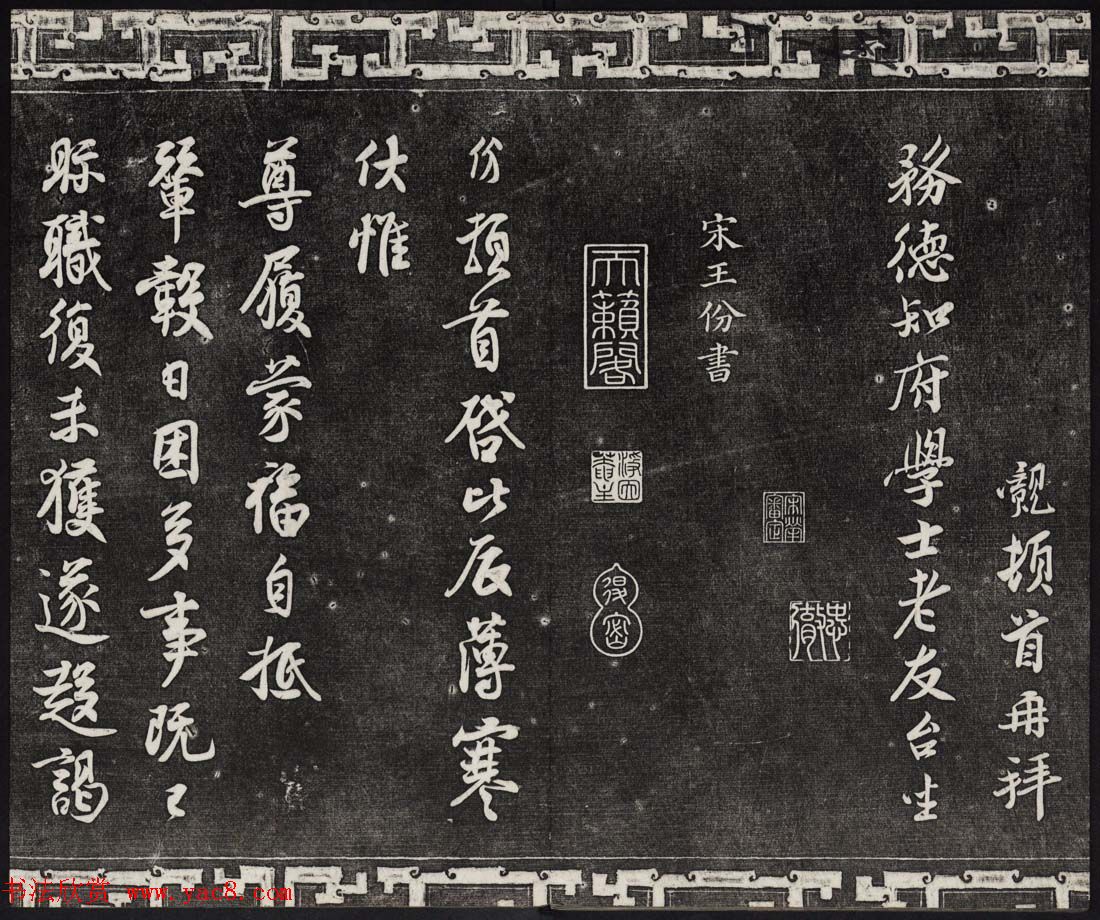 頓首再拜
務德知府學士老友台坐
宋王份書
宋犖審定
忠徹
天籟閣
得密
份頓首啓比辰薄寒
伏惟
尊履蒙福自抵
輦轂日困多事既〻
眎職復未獲遂趍謁
书法欣赏 www.yac8.com